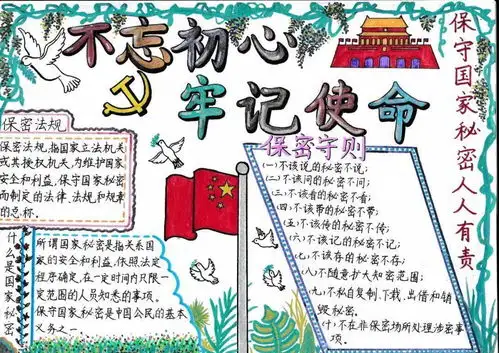 不忘初心
牢记使命
保守国家秘密人人有责
保密法规
保密法规，指国家立法机关
或其授权机关，为维护国家
安全和利益，保守国家秘密
而制定的法律、法规和规章
的总称。
什么是国家秘密
所谓国家秘密是指关系国
家的安全和利益，依照法定
程序确定，在一定时间内只限一
定范围的人员知悉的事项。
保守国家秘密是中国公民的基本
义务之一。
保密守则
(一)不该说的秘密不说；
(二)不该问的秘密不问；
(三)不该看的秘密不看；
(四)不该带的秘密不带；
(五)不该传的秘密不传；
(六)不该记的秘密不记；
(七)不该存的秘密不存；
(八)不随意扩大知密范围；
(九)不私自复制、下载、出借和销
毁秘密。
(十)不在非保密场所处理涉密事
项。